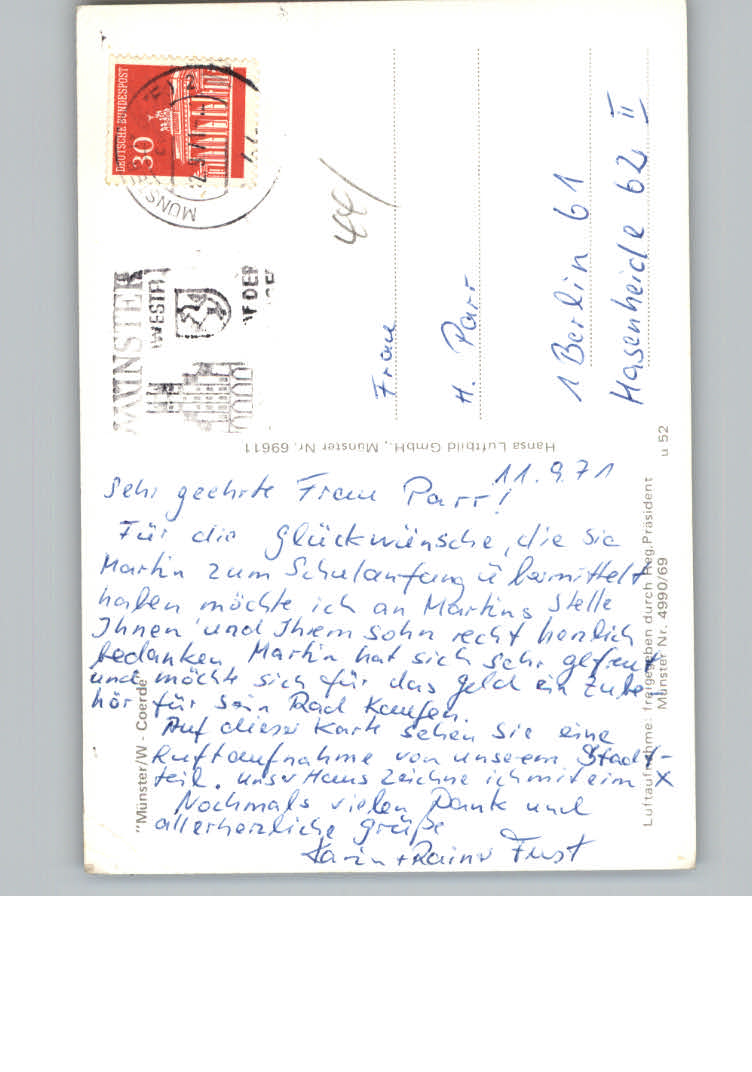 DEUTSCHE BUNDESPOST
30
MÜNSTER
WESTF
44
Frau
H. Parr
1 Berlin 61
Hasenheide 62 II
Hansa Luftbild GmbH., Münster Nr. 69611
u 52
11.9.71
Sehr geehrte Frau Parr!
Für die Glückwünsche, die sie
Martin zum Schulanfang übermittelt
haben möchte ich an Martins Stelle
Ihnen und Ihrem Sohn recht herzlich
bedanken. Martin hat sich sehr gefreut
und möchte sich für das Geld ein Zube-
hör für sein Rad kaufen.
Auf dieser Karte sehen Sie eine
Luftaufnahme von unserem Stadt-
teil. Unser Haus zeichne ich mit eim X
Nochmals vielen Dank und
allerherzliche Grüße
Karin + Rainer Fust
"Münster/W - Coerde"
Luftaufnahme: freigegeben durch Reg.Präsident
Münster Nr. 4990/69